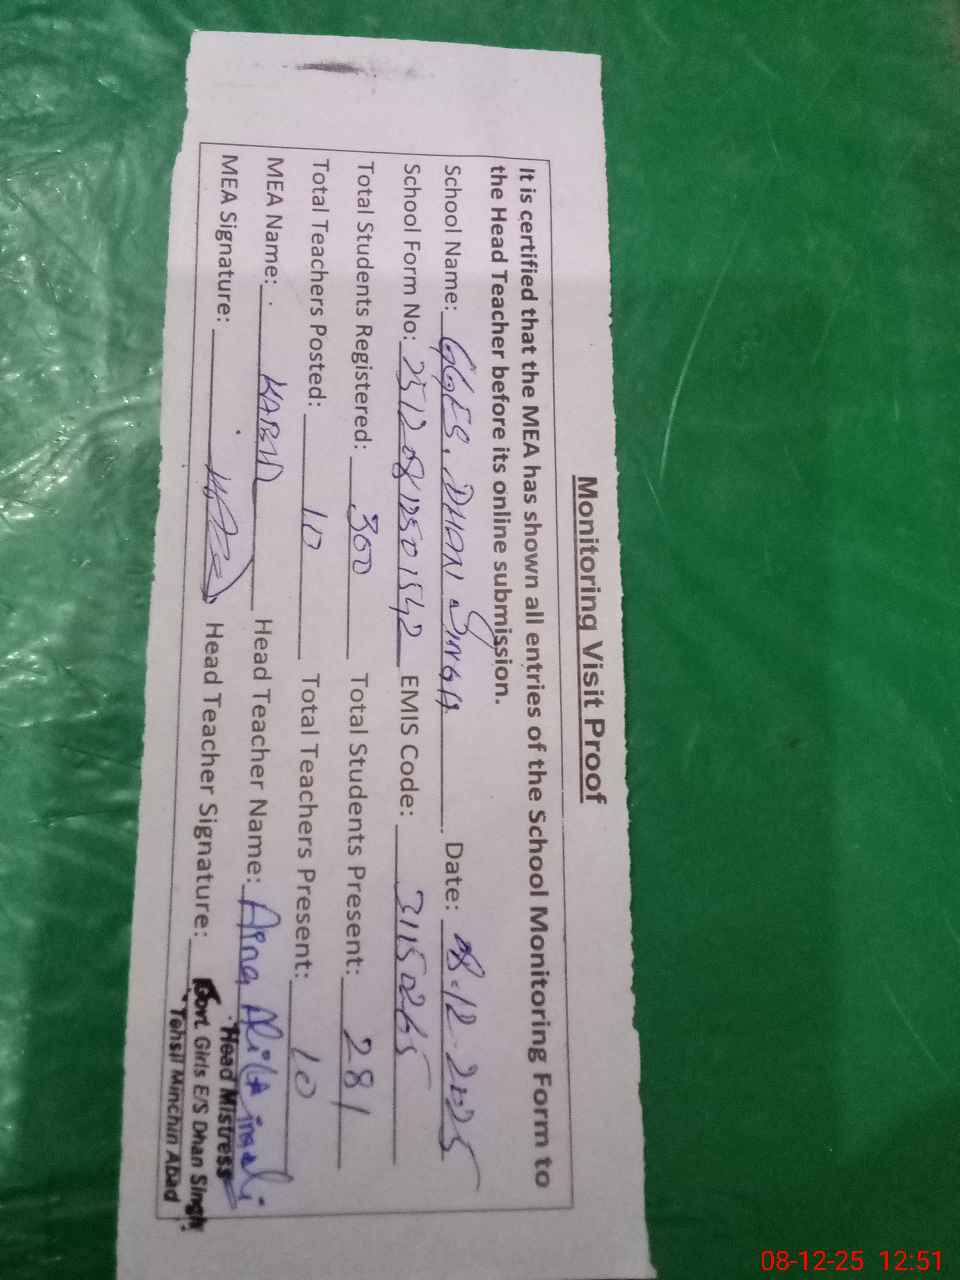 Monitoring Visit Proof
It is certified that the MEA has shown all entries of the School Monitoring Form to
the Head Teacher before its online submission.
School Name: GGES, DHAN SINGH Date: 08-12-2025
School Form No: 25120812501542 EMIS Code: 31150265
Total Students Registered: 300 Total Students Present: 281
Total Teachers Posted: 10 Total Teachers Present: 10
MEA Name: Head Teacher Name:
MEA Signature: Head Teacher Signature:
Head Mistress
Govt. Girls E/S Dhan Singh
Tehsil Minchin Abad
08-12-25 12:51